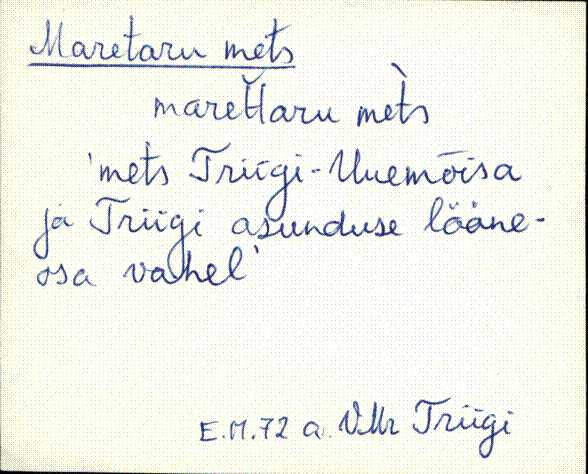 Maretaru mets
mare͔t̆taru mèts
'mets Triigi-Uuemõisa
ja Triigi asunduse lääne-
osa vahel'
E.M.72 a. VMr Triigi